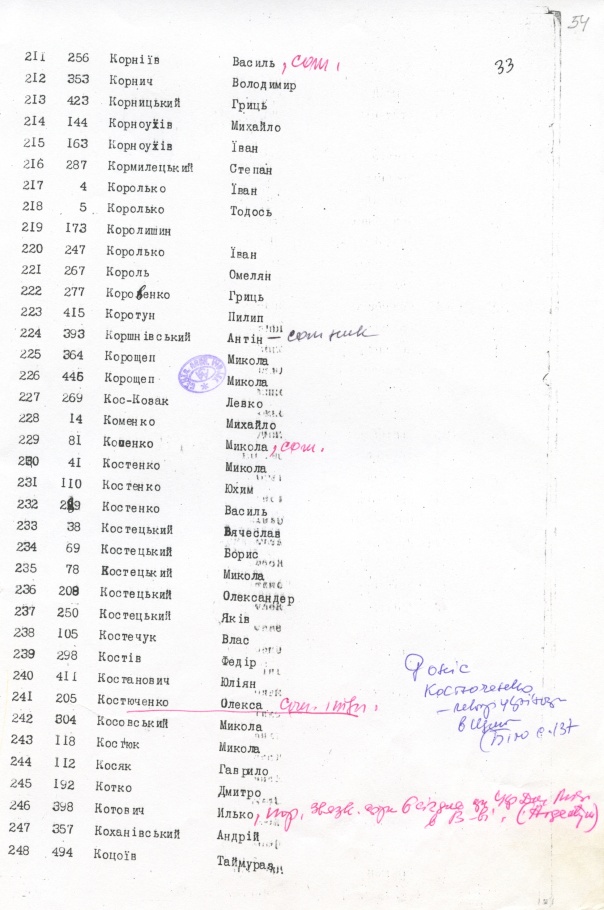 54
33
211 256 Корніїв Василь, сот.
212 353 Корнич Володимир
213 423 Корницький Гриць
214 144 Корноухів Михайло
215 163 Корноухів Їван
216 287 Кормилецький Степан
217 4 Королько Їван
218 5 Королько Тодось
219 173 Королишин
220 247 Королько Їван
221 267 Король Омелян
222 277 Коровенко Гриць
223 415 Коротун Пилип
224 393 Коршнівський Антін — сотник
225 364 Корощеп Микола
226 446 Корощеп Микола
227 269 Кос-Ковак Левко
228 14 Коменко Михайло
229 81 Коменко Микола, сот.
230 41 Костенко Микола
231 110 Костенко Юхим
232 Костенко Василь
233 38 Костецький Вячеслав
234 69 Костецький Борис
235 78 Костецький Микола
236 208 Костецький Олександер
237 250 Костецький Яків
238 105 Костечук Влас
239 298 Костів Федір
240 411 Костанович Юліян
241 205 Костюченко Олекса
242 304 Косовський Микола
243 118 Костюк Микола
244 112 Косяк Гаврило
245 192 Котко Дмитро
246 398 Котович Илько,
247 357 Коханівський Андрій
248 494 Коцоїв Таймураз
Костюченко